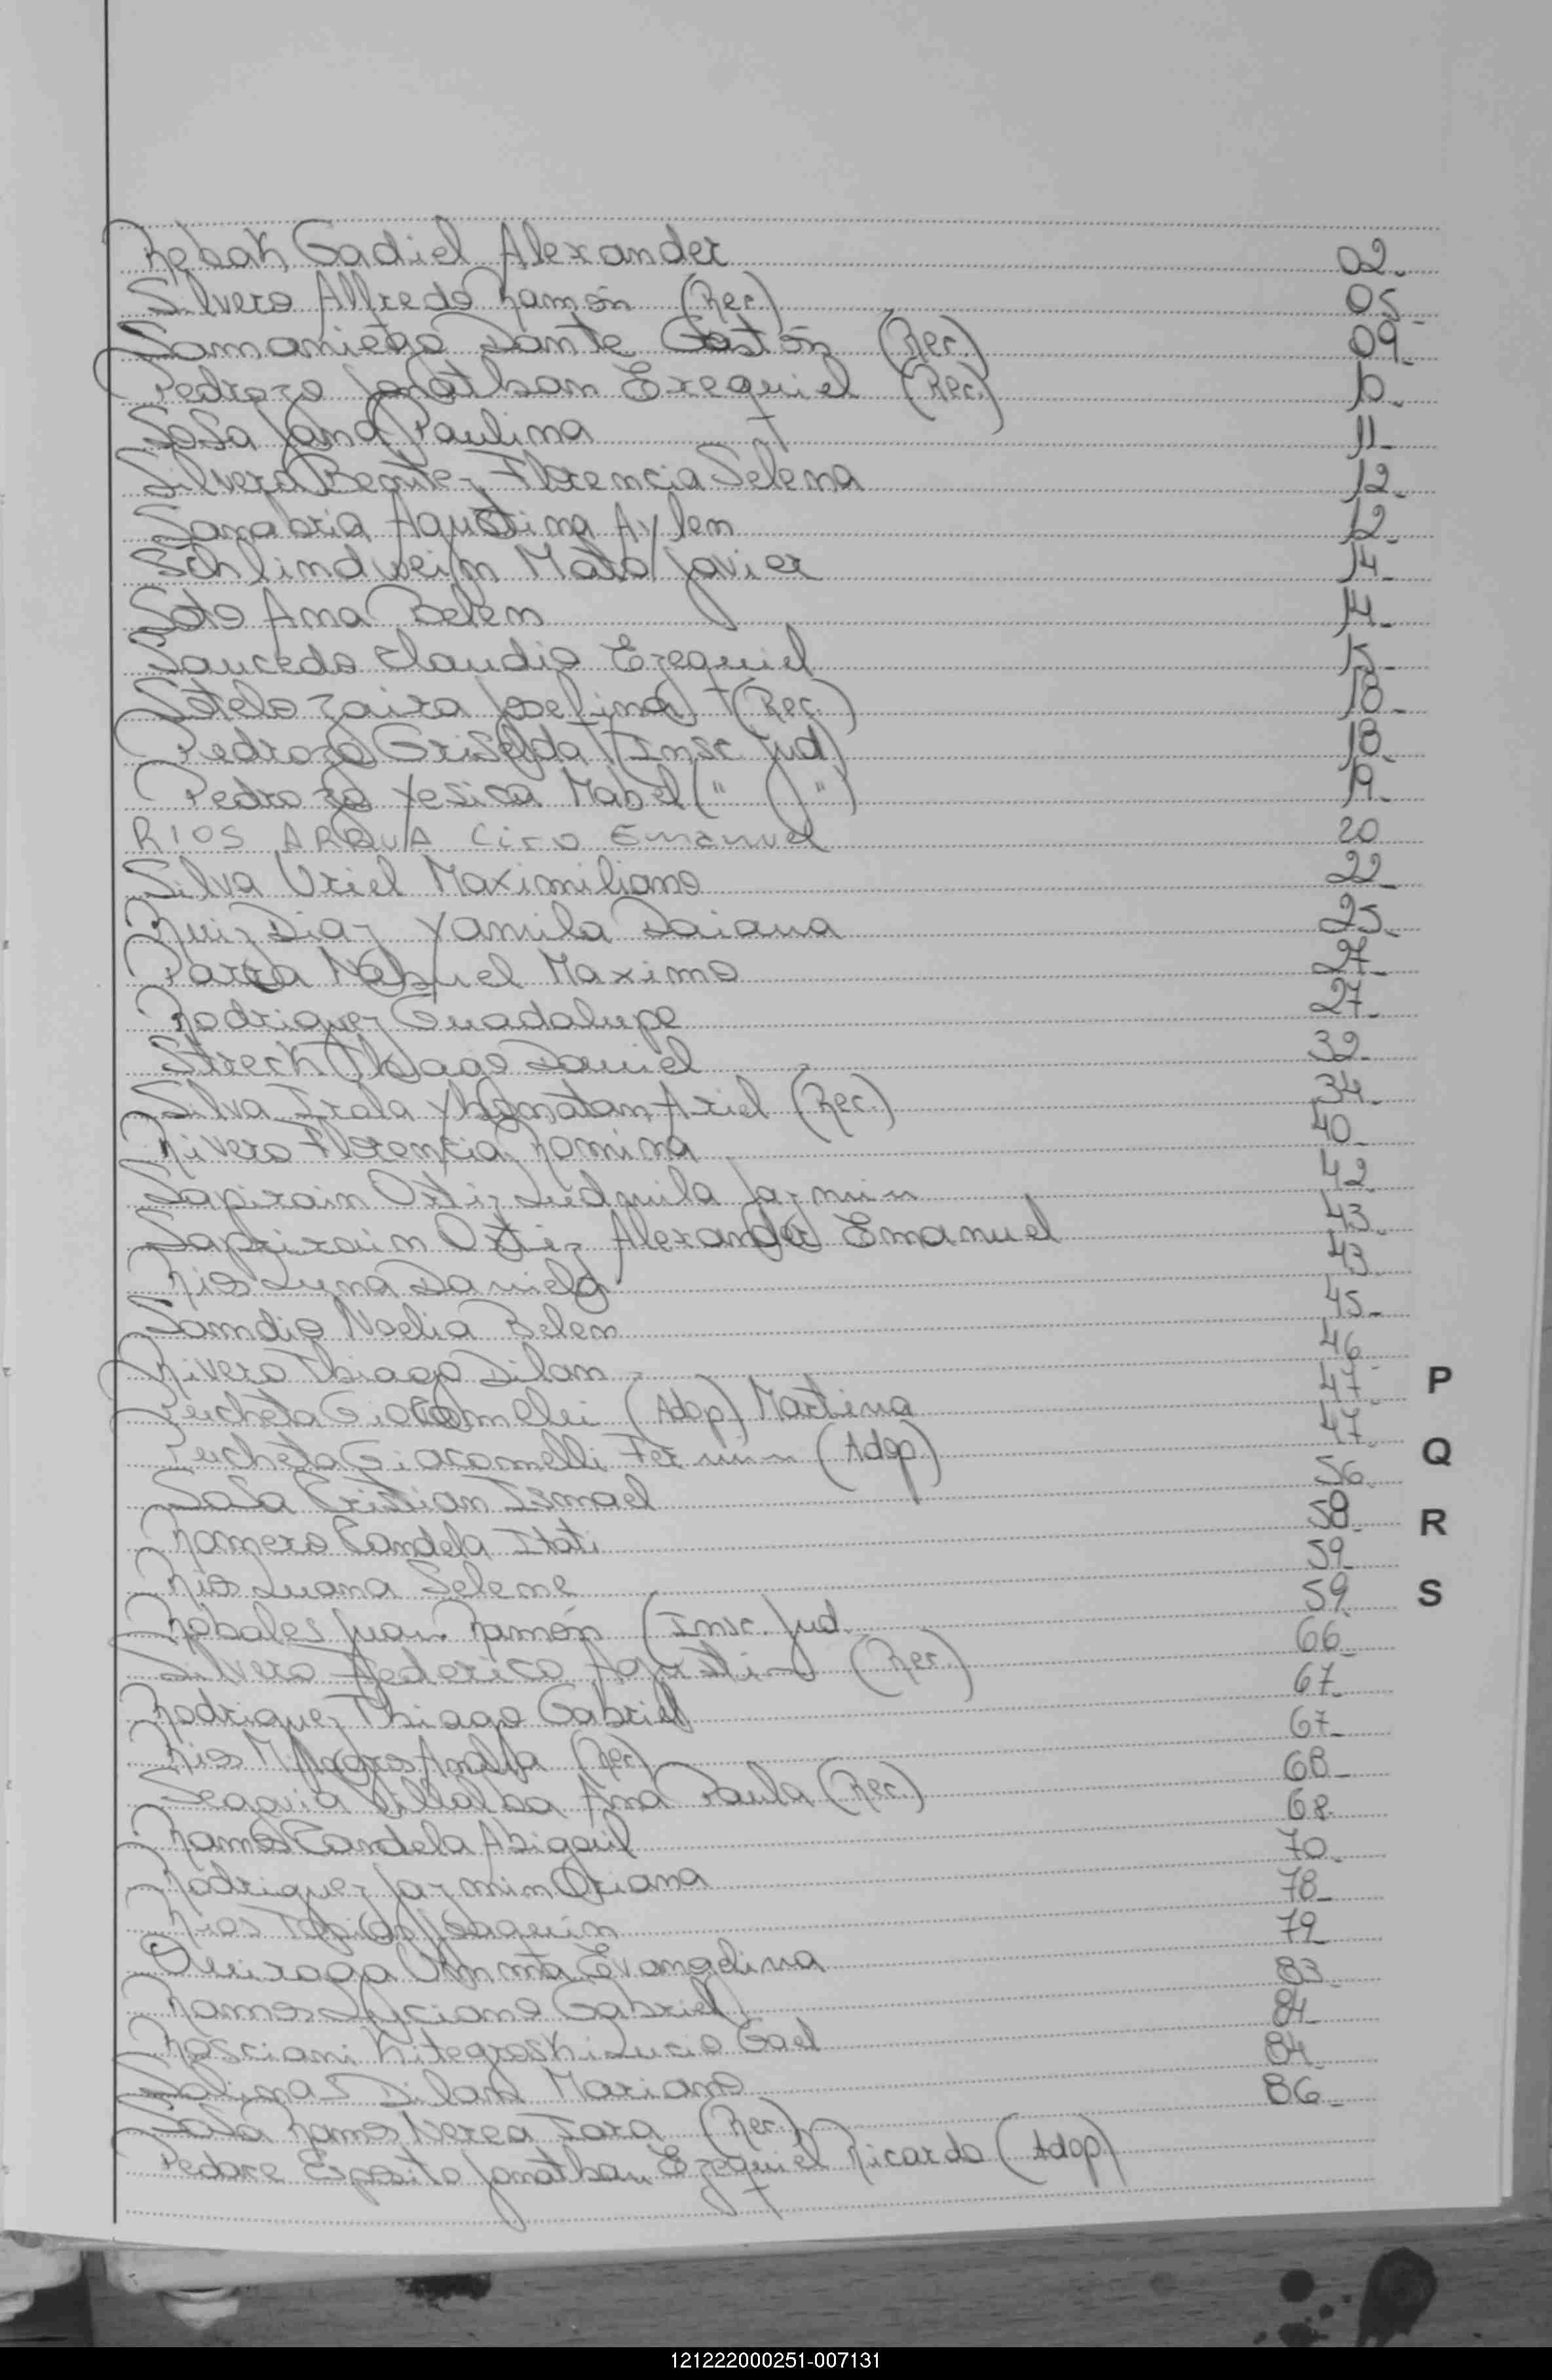 Rebak Gadiel Alexander 02.
Silvero Alfredo Ramón (Rec.) 05
Samaniego Dante Gastón (Rec.) 09.
Pedrozo Jonathan Exequiel (Rec.) 10.
Sosa Jana Paulina 11.
Silvero Benitez Florencia Selena 12.
Sanabria Agustina Aylen 12.
Schlindwein Mato Javier 14.
Soto Ana Belen 14.
Saucedo Claudio Ezequiel 15.
Sotelo Zaira Josefina (Rec.) 18.
Pedrozo Griselda (Insc. Jud) 18.
Pedrozo Yesica Mabel (" ") 19.
RIOS Ciro Emanuel 20
Silva Uriel Maximiliano 22
Ruiz Diaz Yamila Daiana 25.
Parra Nahuel Maximo 27
Rodriguez Guadalupe 27.
Streck Thiago Daniel 32.
Silva Irala Yhonatan Ariel (Rec.) 34.
Rivero Florencia Romina 40
Sapirain Ortiz Ludmila Jazmin 42
Ortiz Alexander Emanuel 43
Rios Luna Daniela 43
Samdio Noelia Belen 45.
Rivero Thiago Dilan 46
Percheta Giacomelli (Adop) Martina 47 P
Percheta Giacomelli Fermin (Adop) 47 Q
Sosa Cristian Ismael 56
Romero Candela Itati 58. R
Rios Luana Selene 59
Robales Juan Ramón (Insc. Jud. 59 S
Silvero Federico Agustin (Rec.) 66
Rodriguez Thiago Gabriel 67.
Rios Milagros (Rec) 67
Segovia Villalba Ana Paula (Rec.) 68
Ramos Candela Abigail 68.
Rodriguez Jazmin Oriana 70.
Rios Tobias Joaquin 78
Quiroga Emma Evangelina 79
Ramos Luciano Gabriel 83
Rosciani Kitegroski Lucio Gael 84
Salinas Dilan Mariano 84
Sosa Ramos Nerea Iara (Rec.) 86
Pedore Esposito Jonathan Ezequiel Ricardo (Adop)
121222000251-007131